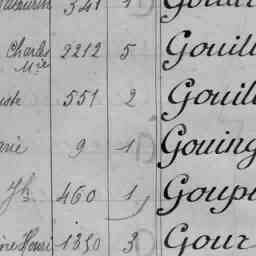 341 1
Charles 2212 5 Gouil
Mie
551 2 Gouil
9 1 Gouing
Jh 460 1 Goup
Henri 1350 3 Gour